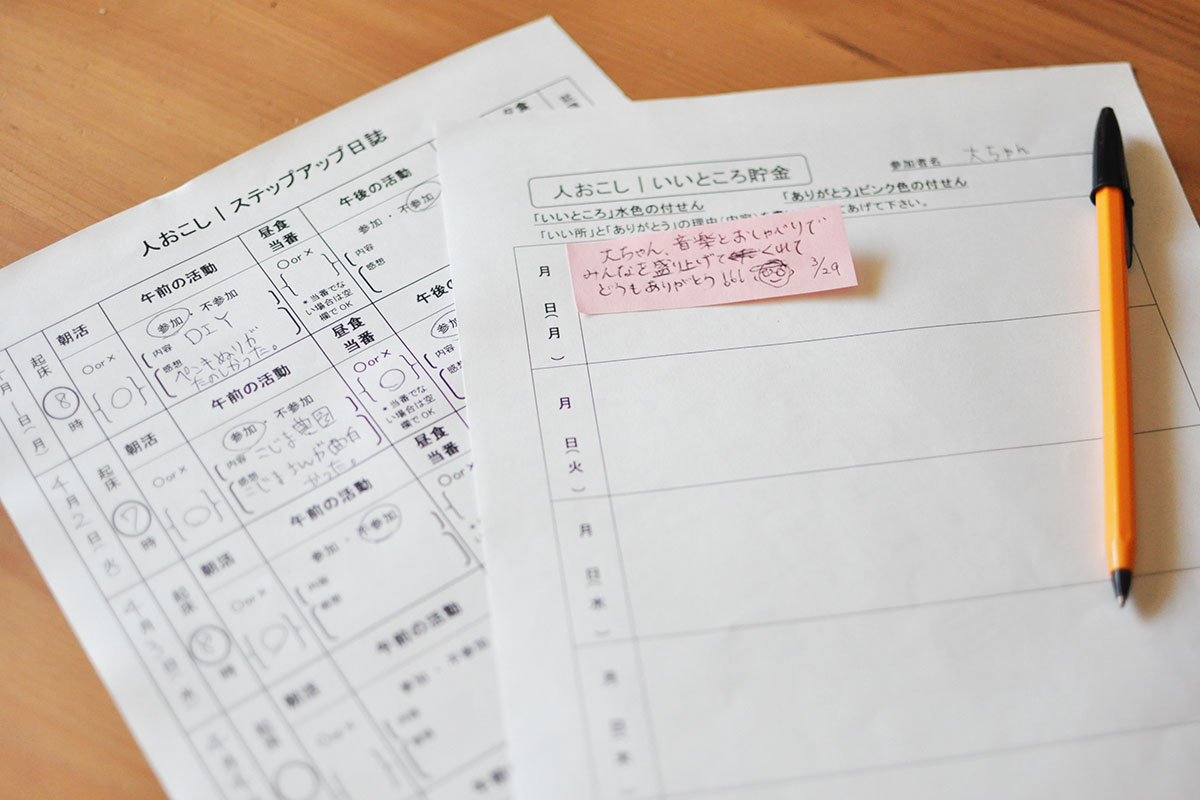 人おこし|ステップアップ日誌
午後の活動
参加・不参加
内容
感想
昼食
当番
○or×
*当番でな
い場合は空
欄でOK
午前の活動
参加・不参加
内容 DIY
感想 ペンキぬりが
たのしかった。
朝活
○or×
○
起床
8
時
月
日(月)
午後の
参加
内容
感想
昼食
当番
○or×
○
*当番でな
い場合は空
欄でOK
午前の活動
参加・不参加
内容 こじま農園
感想 こじまさんが面白
かった。
朝活
○or×
○
起床
7
時
4月2日(火)
昼食
当番
○or
午前の活動
参加・不参加
内容
感想
朝活
○or×
○
起床
8
時
4月3日(水)
午前の活動
参加・不参加
内容
感想
朝活
○or×
起床
午前
人おこし|いいところ貯金
参加者名 大ちゃん
「いいところ」水色の付せん
「ありがとう」ピンク色の付せん
「いい所」と「ありがとう」の理由(内容)を
あげて下さい。
月
日(月)
大ちゃん、音楽とおしゃべりで
みんなを盛り上げてくれて
どうもありがとう!!!
3/29
月
日(火)
月
日(水)
月
日(木)